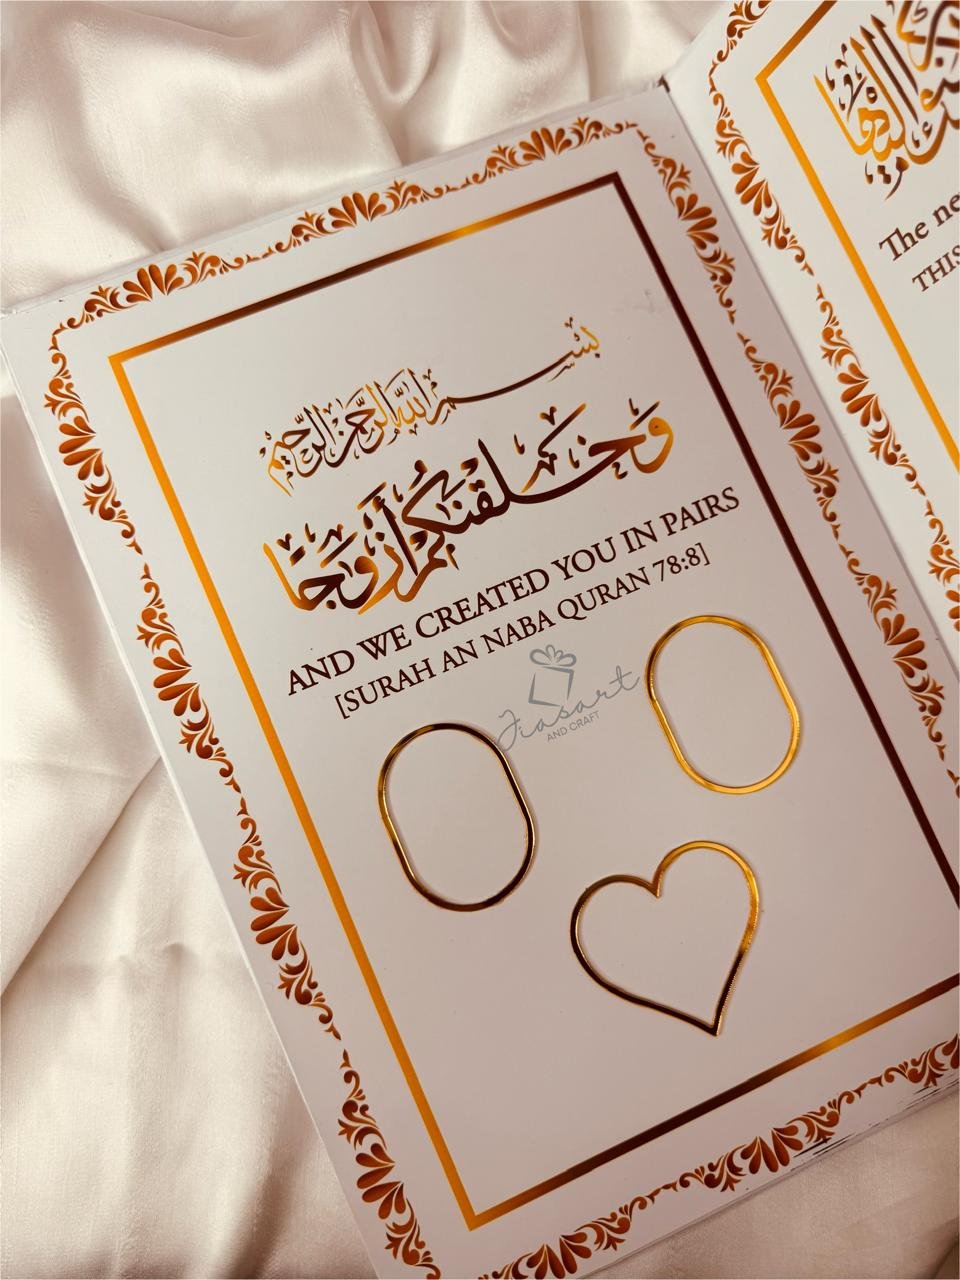 بسم الله الرحمن الرحيم
وخلقنكم أزوجا
AND WE CREATED YOU IN PAIRS
[SURAH AN NABA QURAN 78:8]
Jiasart
AND CRAFT
The ne
THIS